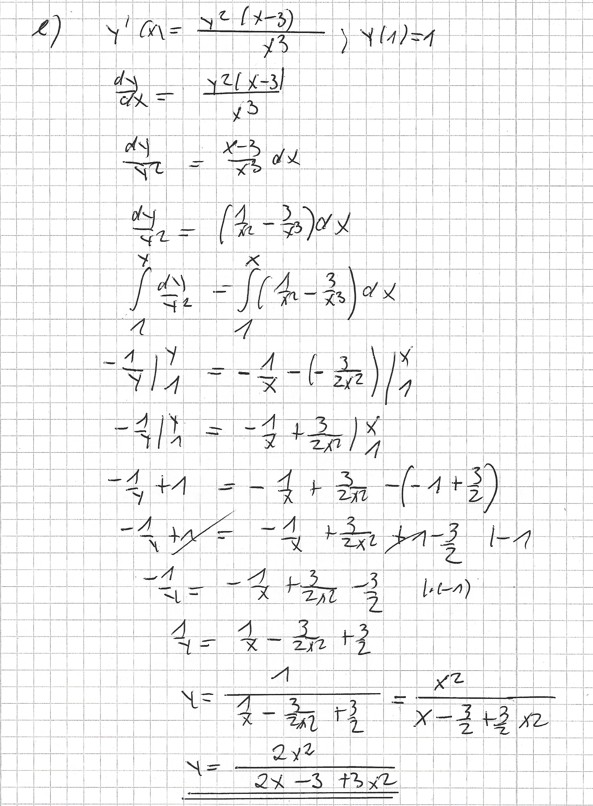 e) y'(x) = y²(x-3)/x³ ; y(1)=1
dy/dx = y²(x-3)/x³
dy/y² = x-3/x³ dx
dy/y² = (1/x² - 3/x³) dx
∫₁ʸ dy/y² = ∫₁ˣ (1/x² - 3/x³) dx
-1/y |₁ʸ = -1/x - (-3/2x²) |₁ˣ
-1/y |₁ʸ = -1/x + 3/2x² |₁ˣ
-1/y + 1 = -1/x + 3/2x² - (-1 + 3/2)
-1/y + 1 = -1/x + 3/2x² + 1 - 3/2 |-1
-1/y = -1/x + 3/2x² - 3/2 |·(-1)
1/y = 1/x - 3/2x² + 3/2
y = 1/(1/x - 3/2x² + 3/2) = x²/(x - 3/2 + 3/2 x²)
y = 2x²/(2x - 3 + 3x²)